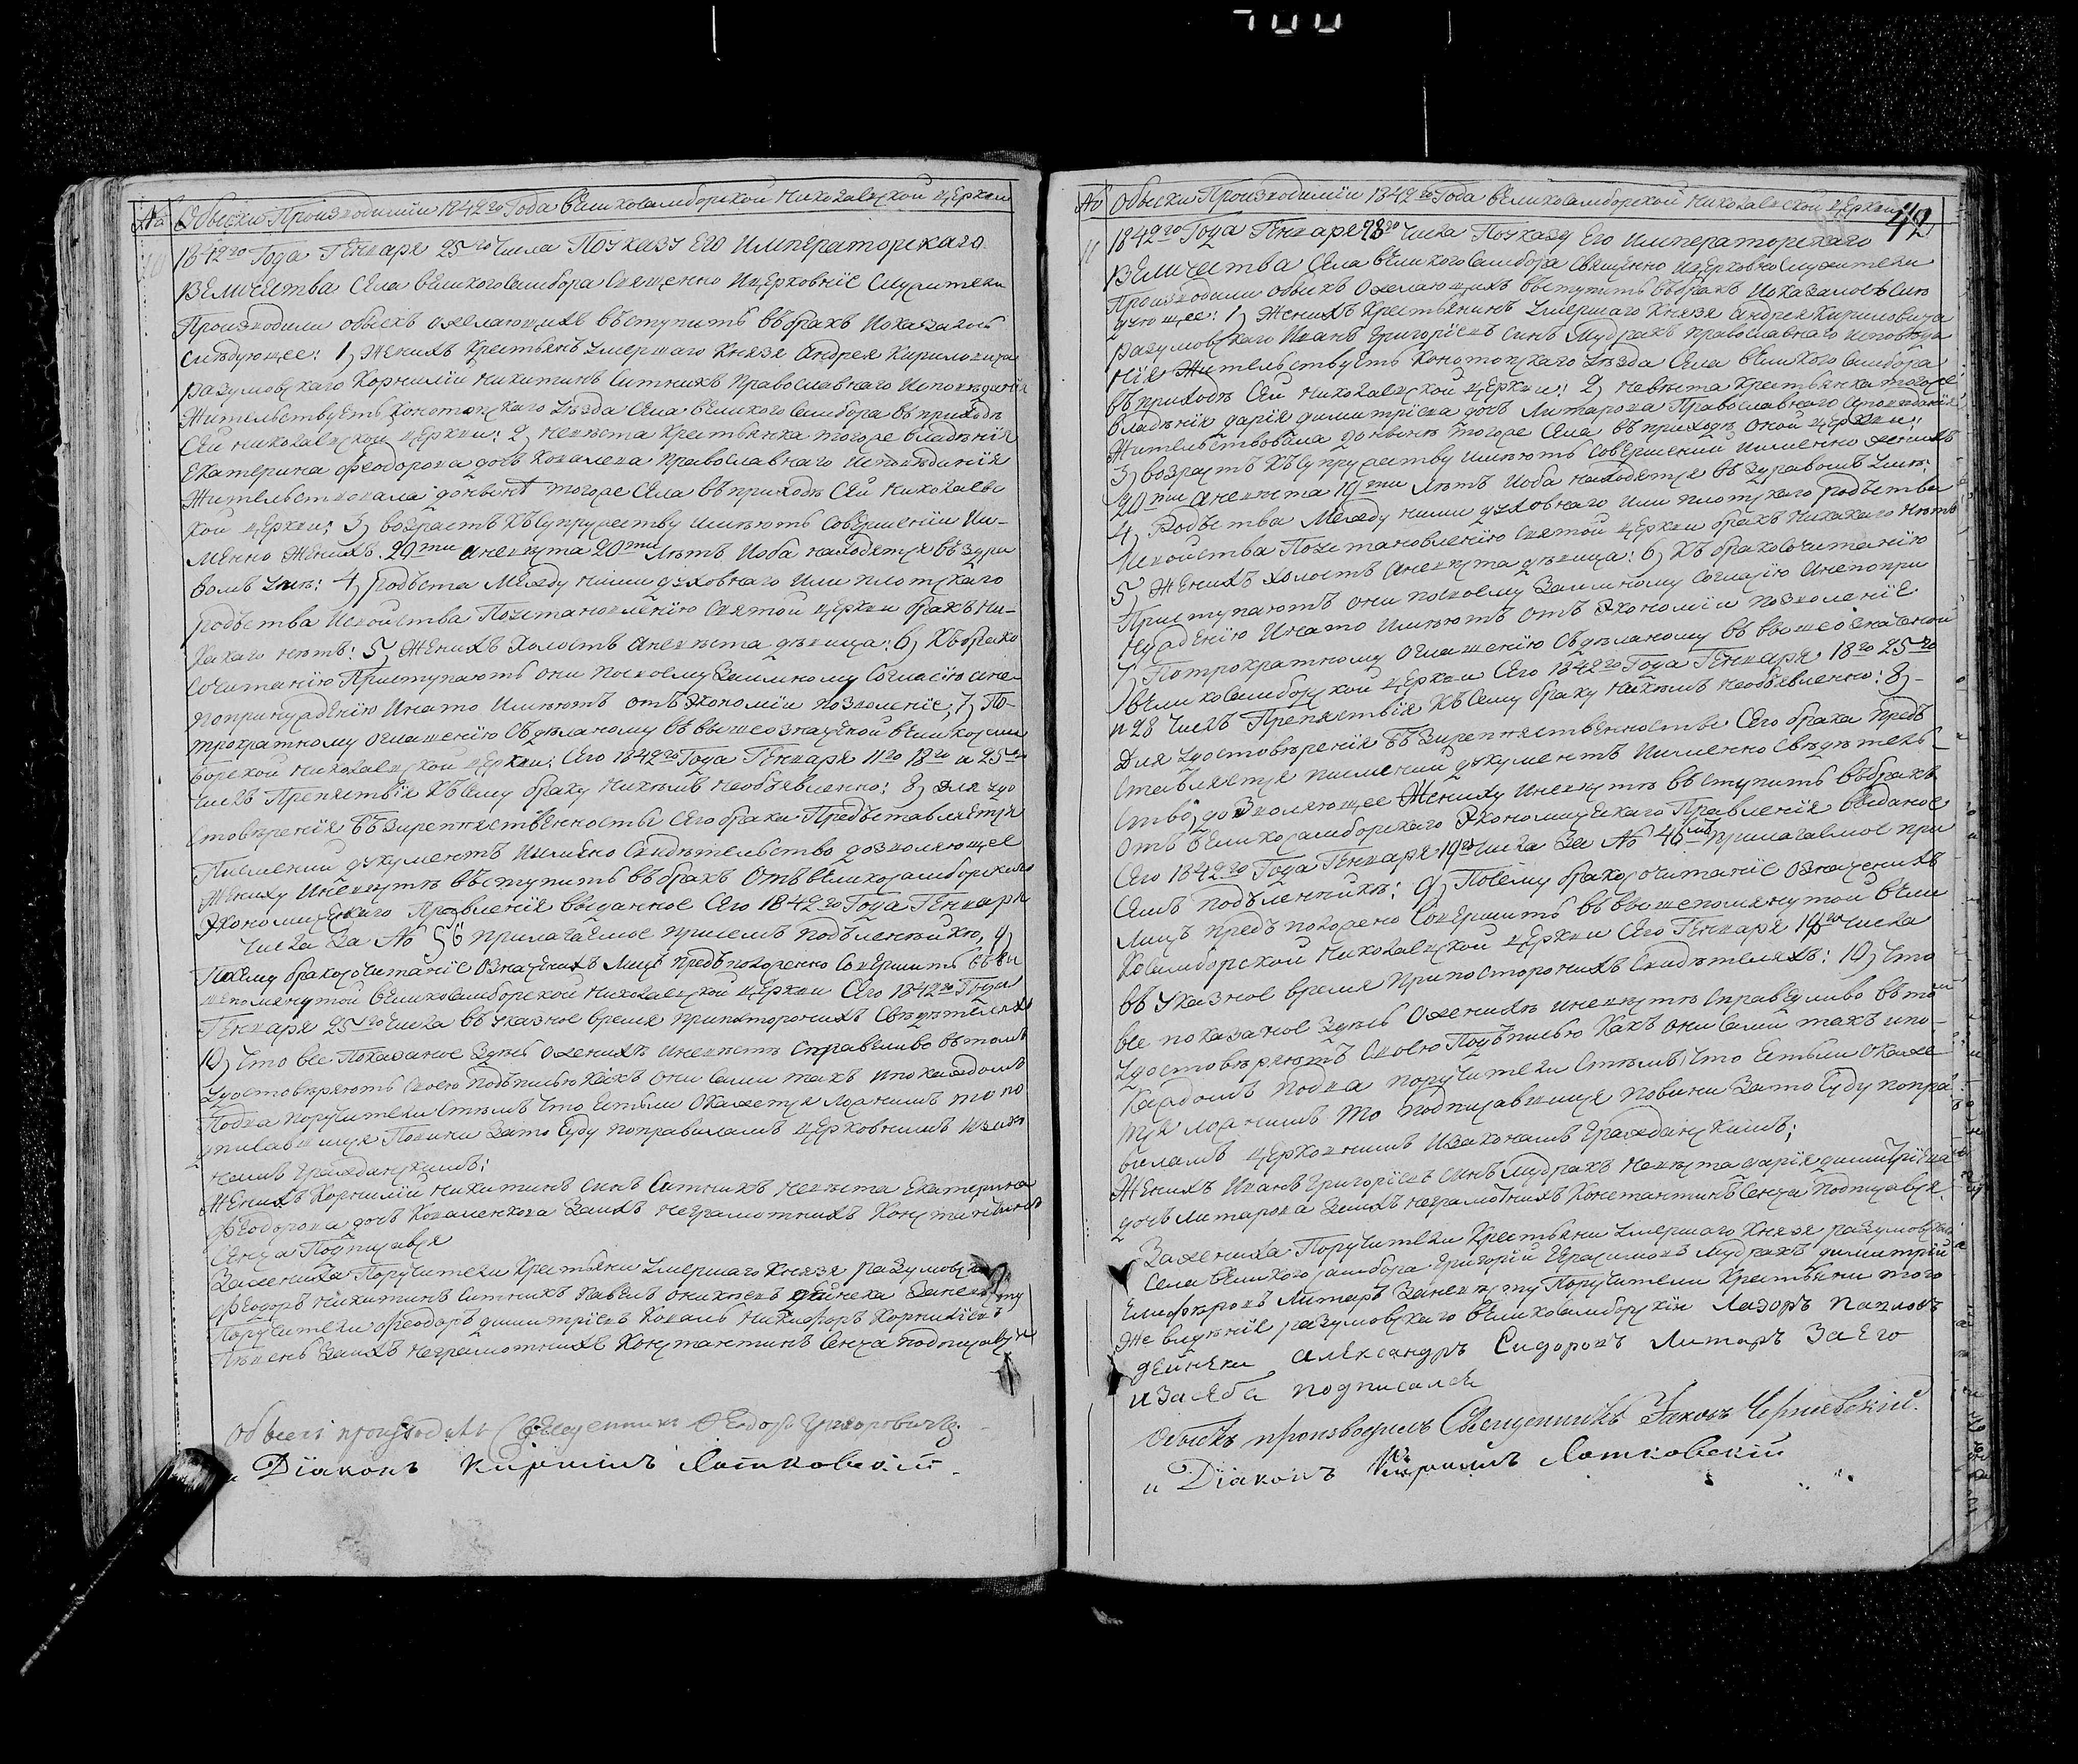 700
№ Обыски Производимiи 1842го Года великосамборской Николаевской церкви
10 1842го Года Генваря 25го числа По указу Его Императорскаго
Величества Села великого самбора Священно и церковнiе служители
Производили обыскъ о желающихъ въступить въ бракъ и оказалось
слѣдующее: 1, Женихъ крестьянъ умершаго Князя Андрея Кирилловича
разумовскаго Корнилiи Никитинъ Ситникъ Православнаго Исповѣданiя
Жительствуетъ Конотопскаго уѣзда Села великого самбора въ приходѣ
Сей николаевской церкви: 2, невѣста крестьянка того же владѣнiя
Екатерина феодорова дочь Ковалева православнаго исповѣданiя
Жительствовала донынѣ того же Села въ приходѣ Сей николаевс
кой церкви: 3, возрастъ къ супружеству имѣютъ совершенiи Им-
менно Женихъ 20ти а невѣста 20ти лѣтъ и оба находятся въ здра
вомъ умѣ: 4, родъства Между ними духовнаго или плотскаго
родъства и свойства По установленiю Святой церкви бракъ ни-
какаго нѣтъ: 5, Женихъ холостъ а невѣста дѣвица: 6, къ брако
сочитанiю Приступаютъ они по своему Взаимному Согласiю а не
по принужденiю и на то имѣютъ отъ Экономiи позволенiе; 7, По
трократному оглашенiю Съдѣланому въ вышеозначеной великосам
борской николаевской церкви Сего 1842го Года Генваря 11го 18го и 25го
числъ Препятствiя къ сему браку никѣмъ необъявленно: 8, Для удо
стовѣренiя безпрепятственности Сего брака Предъставляется
Писменiй документъ именно Свидѣтельство дозволяющее
Жениху и невѣстѣ въступить въ бракъ отъ великосамборскаго
Экономическаго Правленiя выданное Сего 1842го Года Генваря
числа За № 56 прилагаемое при семъ подъленнику, 9,
По сему бракосочитанiе означенихъ Лицъ предъположенно Совершить въ вы
шепомянутой великосамборской николаевской церкви Сего 1842го Года
Генваря 25го числа въ указное время при пясторонихъ Свѣдѣтеляхъ
10, Что все Показаное Здѣсь о женихѣ и невѣстѣ справѣдливо въ томъ
удостовѣряютъ своею подъписью какъ они сами такъ и по каждомъ
по два поручители Стѣмъ что Естьли окажется ложнимъ то по
дписавшиися Повини За то Суду по правиламъ церковнимъ и зако
намъ гражданскимъ:
Женихъ Корнилiй никитинъ синъ Ситникъ невѣста Екатерина
Феодорова дочь Коваленкова За нихъ неграмотнихъ Константинъ
Сенча Подписався
За жениха Поручители Крестьяни умершаго Князя разумовска
Феодоръ никитинъ Ситникъ Павелъ дейнека За невѣсту
Поручители феодоръ димитрiевъ Коваль Никифоръ Корнилiевъ
За нихъ неграмотнихъ Константинъ Сенча подписався
Обыскъ производилъ Священникъ Григоровичъ
и Дiаконъ Кирилъ Лятковскiй
№ Обыски Производимiи 1842го Года великосамборской Николаевской церкви 42
11 1842го Года Генваря 28го числа По указу Его Императорскаго
Величества Села великого самбора священно и церковнослужители
Производили обыскъ о желающихъ въступить въ бракъ и оказалось слѣ
дующее: 1, Женихъ крестьянинъ умершаго князя андрея кириловича
разумовскаго Иванъ Григорiевъ синъ Мудракъ православнаго исповѣда
нiя Жительствуетъ конотопскаго уѣзда Села великого самбора
въ приходѣ Сей николаевской церкви: 2, невѣста крестьянка того же
владѣнiя дарiя димитрiева дочь Литарова Православнаго исповѣданiя
Жительствовала донынѣ того же Села въ приходѣ оной церкви:
3, возрастъ къ супружеству имѣютъ совершенiй именно женихъ
20ти а невѣста 19ти лѣтъ и оба находятся въ здравомъ умѣ:
4, Родъства Между ними духовнаго или плотскаго родъства
и свойства По установленiю святой церкви бракъ никакаго нѣтъ
5, Женихъ холостъ а невѣста дѣвица: 6, къ бракосочитанiю
Приступаютъ они по своему Взаимному согласiю а не по при
нужденiю и на то имѣютъ отъ Экономiи позволенiе
7, По трократному оглашенiю Съдѣланому въ вышеозначеной
великосамборской церкви Сего 1842го Года Генваря 18го 25го
и 28 числъ Препятствiя къ сему браку никѣмъ необъявленно: 8,
Для удостовѣренiя безпрепятственности Сего брака предъ
ставляется писмений документъ именно свѣдѣтель-
ство, дозволяющее Жениху и невѣстѣ въступить въ бракъ
отъ великосамборскаго Экономическаго Правленiя выданое
Сего 1842го Года Генваря 19го числа за № 46мъ прилагаемое при
семъ подъленникѣ: 9, По сему бракосочитанiе означенихъ
лицъ предъположено Совершить въ вышепомянутой вели
косамборской николаевской церкви Сего Генваря числа
въ указное время при постороннихъ свидѣтеляхъ: 10, Что
все показаное здѣсь о женихѣ и невѣстѣ справедливо въ томъ
удостовѣряютъ своею подъписью какъ они сами такъ и по-
каждомъ по два поручители стѣмъ что Естьли окаже
тся ложнимъ то подписавшиися повини за то суду по пра
виламъ церковнимъ и законамъ гражданскимъ;
Женихъ Иванъ Григорiевъ синъ Мудракъ невѣста дарiя димитрiева
дочь литарова за нихъ неграмотнихъ Константинъ Сенча подписався
За жениха Поручители крестьяни умершаго князя разумовска
села великого самбора Григорiй Герасимовъ Мудракъ димитрiй
Литаръ за невѣсту Поручители Крестьяни того
же владѣнiя разумовскаго великосамборскiи Лазоръ Павловъ
дейнеки Александръ Сидоровъ Литаръ За его
и за ябе подписался
Обыскъ производилъ Священникъ Яковъ Чернявскiй.
и Дiаконъ Кирилъ Лятковскiй